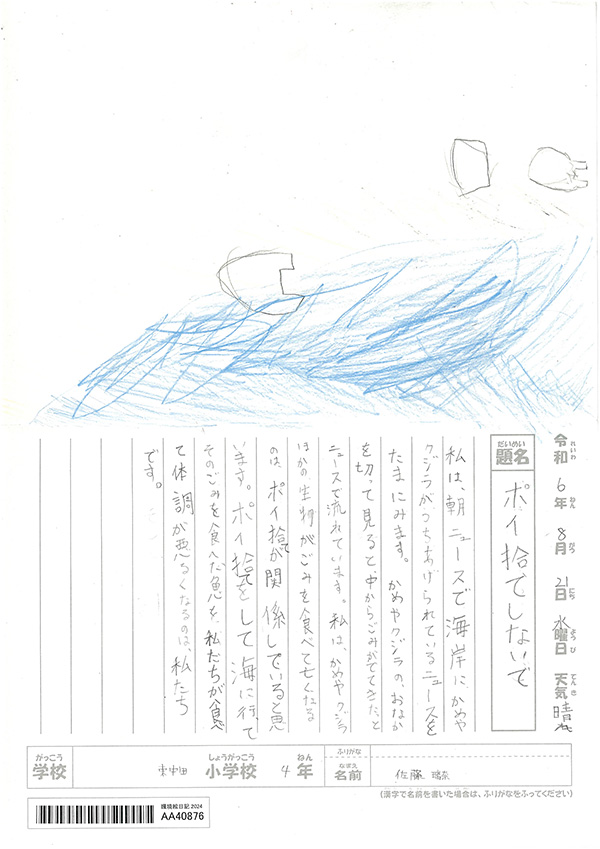 令和6年8月21日水曜日 天気晴れ
れいわ ねん がつ にち ようび てんき
だいめい
題名 ポイ捨てしないで
私は、朝ニュースで海岸に、かめや
クジラがうちあげられているニュースを
たまにみます。かめやクジラのおなか
を切って見ると中からごみがでてきたと
ニュースで流れています。私は、かめやクジラ
ほかの生物がごみを食べて亡くなる
のは、ポイ捨てが関係していると思
います。ポイ捨てをして海に行って
そのごみを食べた魚を、私たちが食べ
て体調が悪るくなるのは、私たち
です。
がっこう
学校
しょうがっこう
小学校
ねん
4年
ふりがな
なまえ
名前 佐藤
(漢字で名前を書いた場合は、ふりがなをふってください)
環境絵日記2024
AA40876